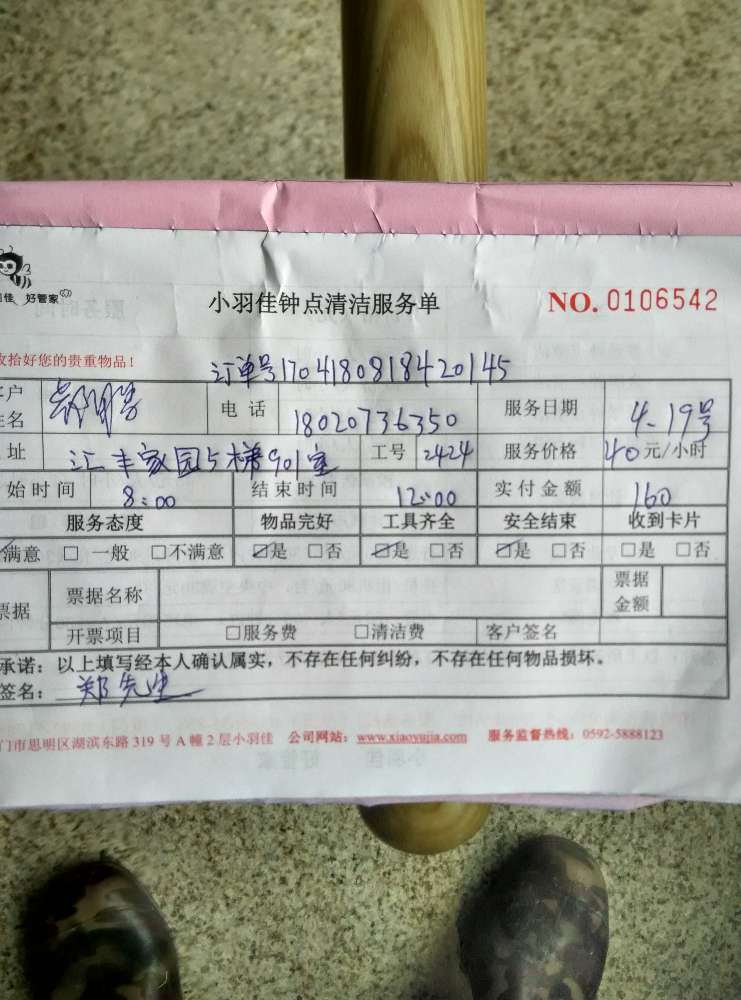 佳 好管家
小羽佳钟点清洁服务单
NO. 0106542
收拾好您的贵重物品！
订单号170418081842 0145
客户姓名
电话 18020736350 服务日期 4.19号
址 汇丰家园5梯901室 工号 2424 服务价格 40元/小时
始时间 8:00 结束时间 12:00 实付金额 160
服务态度 物品完好 工具齐全 安全结束 收到卡片
满意 □ 一般 □不满意 ☑是 □否 ☑是 □否 ☑是 □否 □是 □否
票据 票据名称 票据金额
开票项目 □服务费 □清洁费 客户签名
承诺：以上填写经本人确认属实，不存在任何纠纷，不存在任何物品损坏。
签名：郑先生
门市思明区湖滨东路 319 号 A 幢 2 层小羽佳 公司网站：www.xiaoyujia.com 服务监督热线：0592-5888123